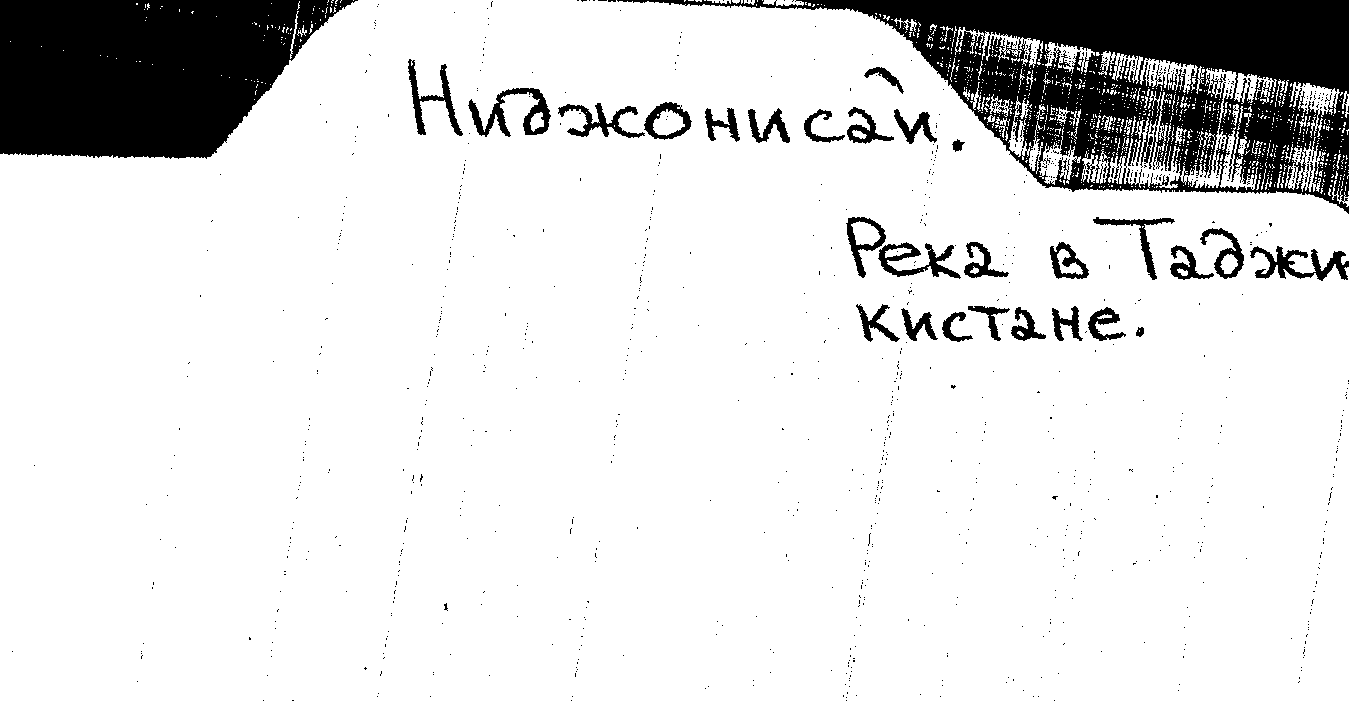 Ниджонисай.
Река в Таджи
кистане.